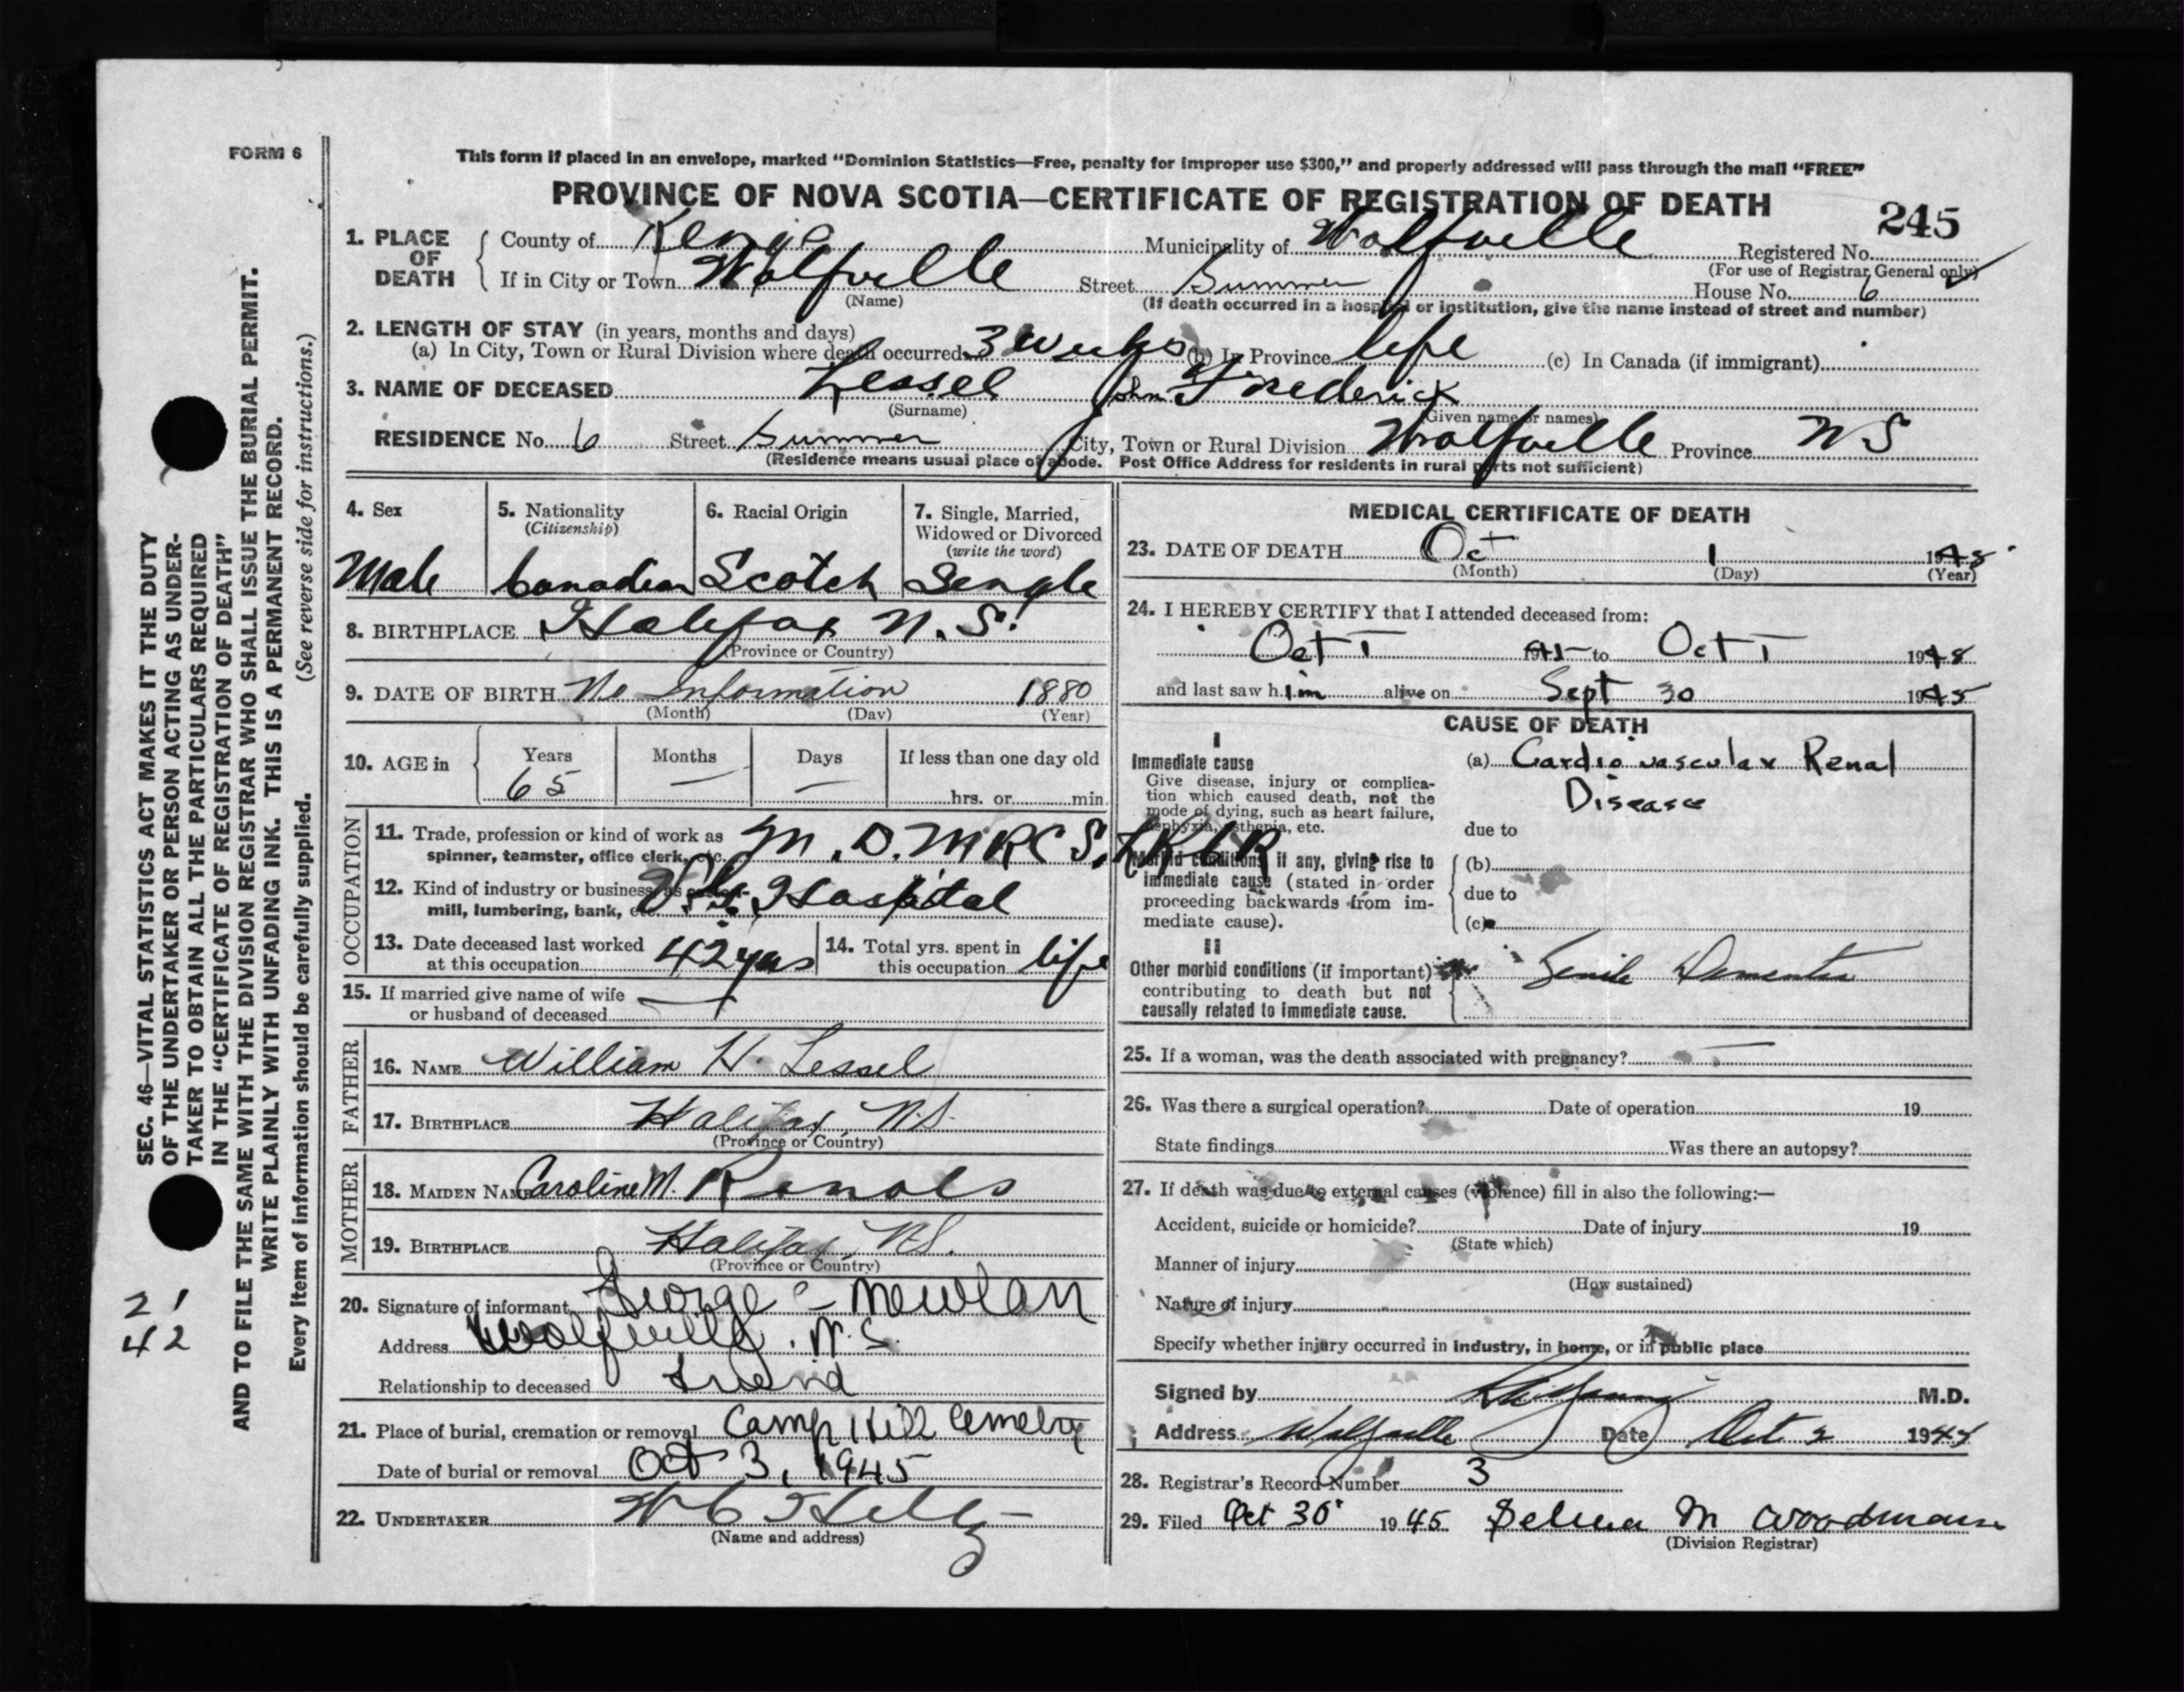 FORM 6
This form if placed in an envelope, marked "Dominion Statistics—Free, penalty for improper use $300," and properly addressed will pass through the mail "FREE"
PROVINCE OF NOVA SCOTIA—CERTIFICATE OF REGISTRATION OF DEATH
245
1. PLACE OF DEATH
County of Kings Municipality of Wolfville Registered No.
(For use of Registrar General only)
If in City or Town Wolfville Street Summer House No. 6
(Name) (If death occurred in a hospital or institution, give the name instead of street and number)
2. LENGTH OF STAY (in years, months and days)
(a) In City, Town or Rural Division where death occurred 3 weeks (b) In Province life (c) In Canada (if immigrant)
3. NAME OF DECEASED Lessel John Frederick
(Surname) (Given name or names)
RESIDENCE No. 6 Street Summer City, Town or Rural Division Wolfville Province N S
(Residence means usual place of abode. Post Office Address for residents in rural parts not sufficient)
4. Sex
Male
5. Nationality
(Citizenship)
Canadian
6. Racial Origin
Scotch
7. Single, Married,
Widowed or Divorced
(write the word)
Single
8. BIRTHPLACE Halifax N.S.
(Province or Country)
9. DATE OF BIRTH No Information 1880
(Month) (Day) (Year)
10. AGE in
Years Months Days If less than one day old
65 — — hrs. or min.
OCCUPATION
11. Trade, profession or kind of work as
spinner, teamster, office clerk, etc. M.D. M R C S, L R C P
12. Kind of industry or business, as cotton-
mill, lumbering, bank, etc. V.G. Hospital
13. Date deceased last worked
at this occupation 42 yrs
14. Total yrs. spent in
this occupation life
15. If married give name of wife
or husband of deceased —
FATHER
16. NAME William H. Lessel
17. BIRTHPLACE Halifax, N.S.
(Province or Country)
MOTHER
18. MAIDEN NAME Caroline M.
19. BIRTHPLACE Halifax, N.S.
(Province or Country)
20. Signature of informant George C Nowlan
Address Wolfville, N.S.
Relationship to deceased Friend
21. Place of burial, cremation or removal Camp Hill Cemetry
Date of burial or removal Oct 3, 1945
22. UNDERTAKER
(Name and address)
MEDICAL CERTIFICATE OF DEATH
23. DATE OF DEATH Oct 1 1945
(Month) (Day) (Year)
24. I HEREBY CERTIFY that I attended deceased from:
Oct 1 1945 to Oct 1 1945
and last saw him alive on Sept 30 1945
CAUSE OF DEATH
I
Immediate cause
Give disease, injury or complica-
tion which caused death, not the
mode of dying, such as heart failure,
asphyxia, asthenia, etc.
(a) Cardio vascular Renal
Disease
due to
Morbid conditions, if any, giving rise to
immediate cause (stated in order
proceeding backwards from im-
mediate cause).
(b)
due to
(c)
II
Other morbid conditions (if important)
contributing to death but not
causally related to immediate cause.
Senile Dementia
25. If a woman, was the death associated with pregnancy? —
26. Was there a surgical operation? Date of operation 19
State findings Was there an autopsy?
27. If death was due to external causes (violence) fill in also the following:—
Accident, suicide or homicide? Date of injury 19
(State which)
Manner of injury
(How sustained)
Nature of injury
Specify whether injury occurred in industry, in home, or in public place
Signed by M.D.
Address Wolfville Date Oct 2 1945
28. Registrar's Record Number 3
29. Filed Oct 30 1945 Selina M Woodman
(Division Registrar)
SEC. 46—VITAL STATISTICS ACT MAKES IT THE DUTY
OF THE UNDERTAKER OR PERSON ACTING AS UNDER-
TAKER TO OBTAIN ALL THE PARTICULARS REQUIRED
IN THE "CERTIFICATE OF REGISTRATION OF DEATH"
AND TO FILE THE SAME WITH THE DIVISION REGISTRAR WHO SHALL ISSUE THE BURIAL PERMIT.
WRITE PLAINLY WITH UNFADING INK. THIS IS A PERMANENT RECORD.
Every item of information should be carefully supplied. (See reverse side for instructions.)
21
42